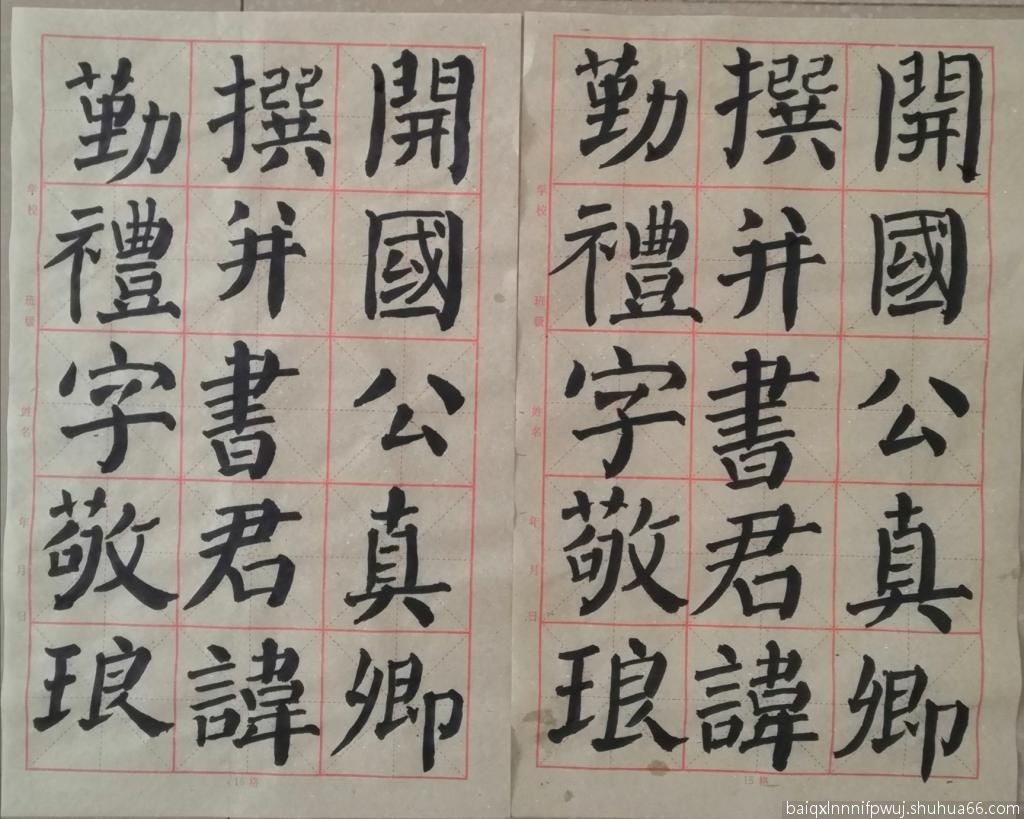 開國公真卿
撰并書君諱
勤禮字敬琅
学校
班级
姓名
年 月 日
15格
開國公真卿
撰并書君諱
勤禮字敬琅
学校
班级
姓名
年 月 日
15格
baiqxlnnnifpwuj.shuhua66.com